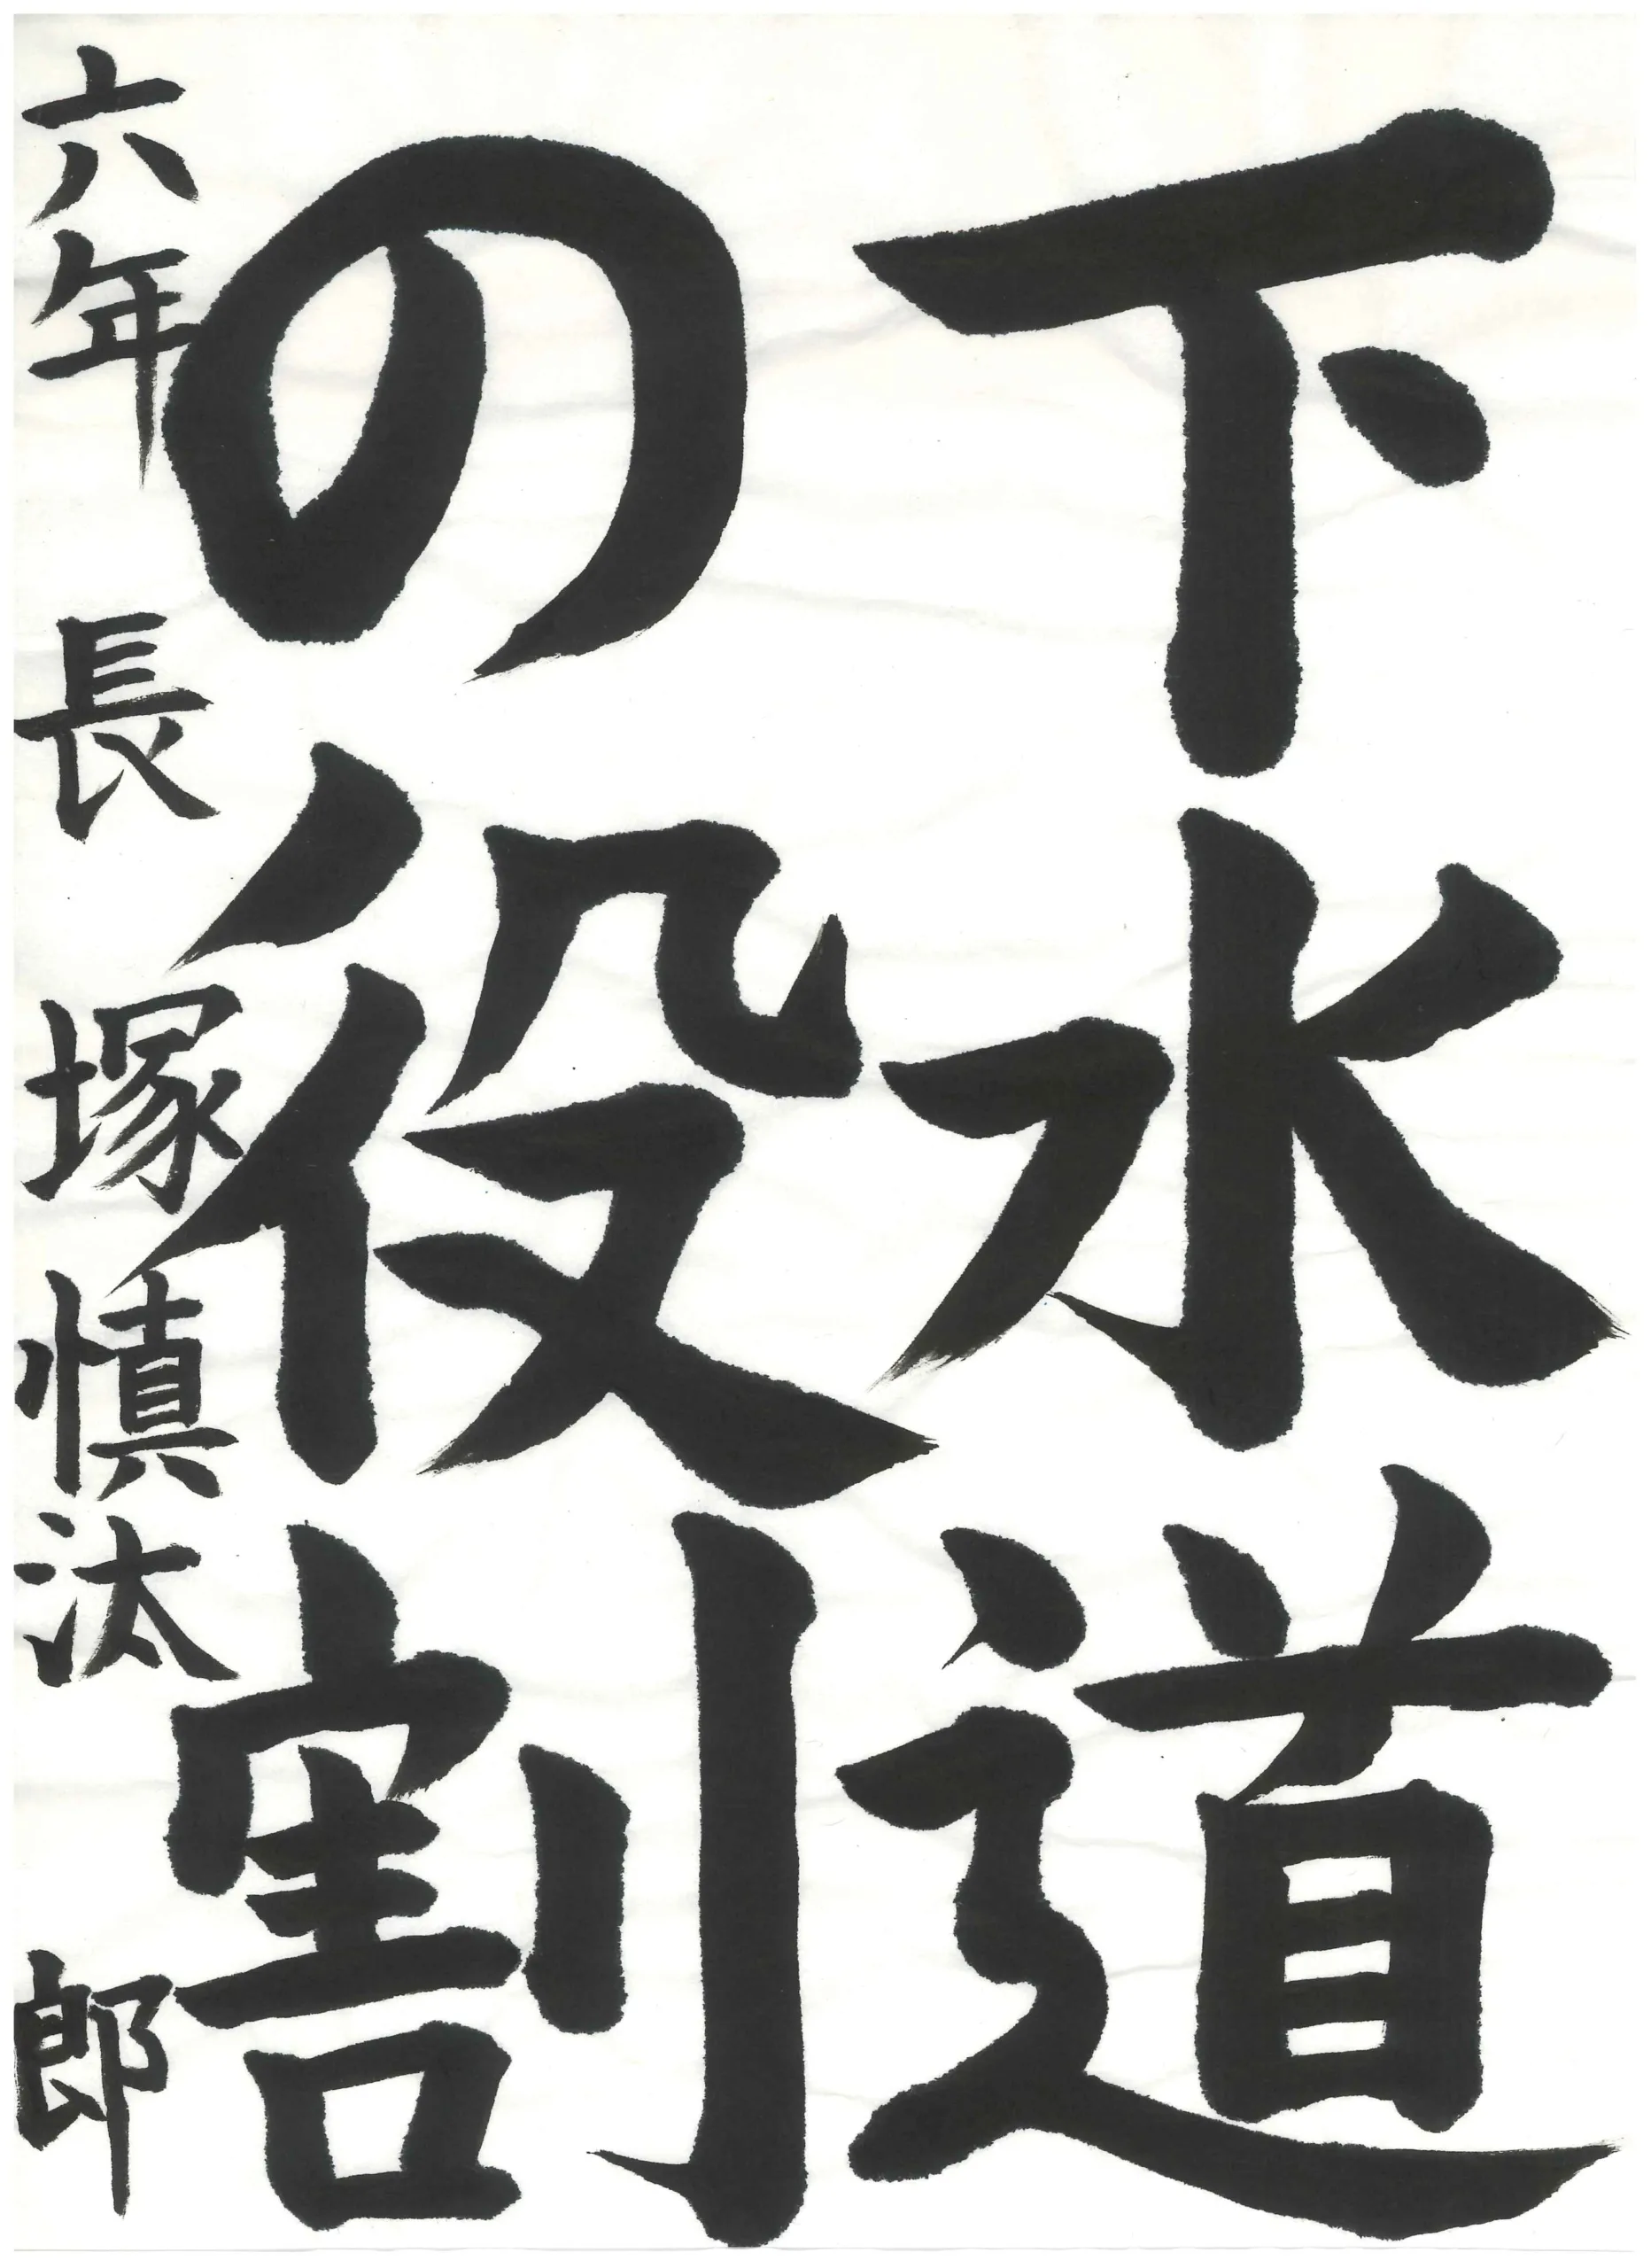 下水道
の役割
六年 長塚慎汰郎